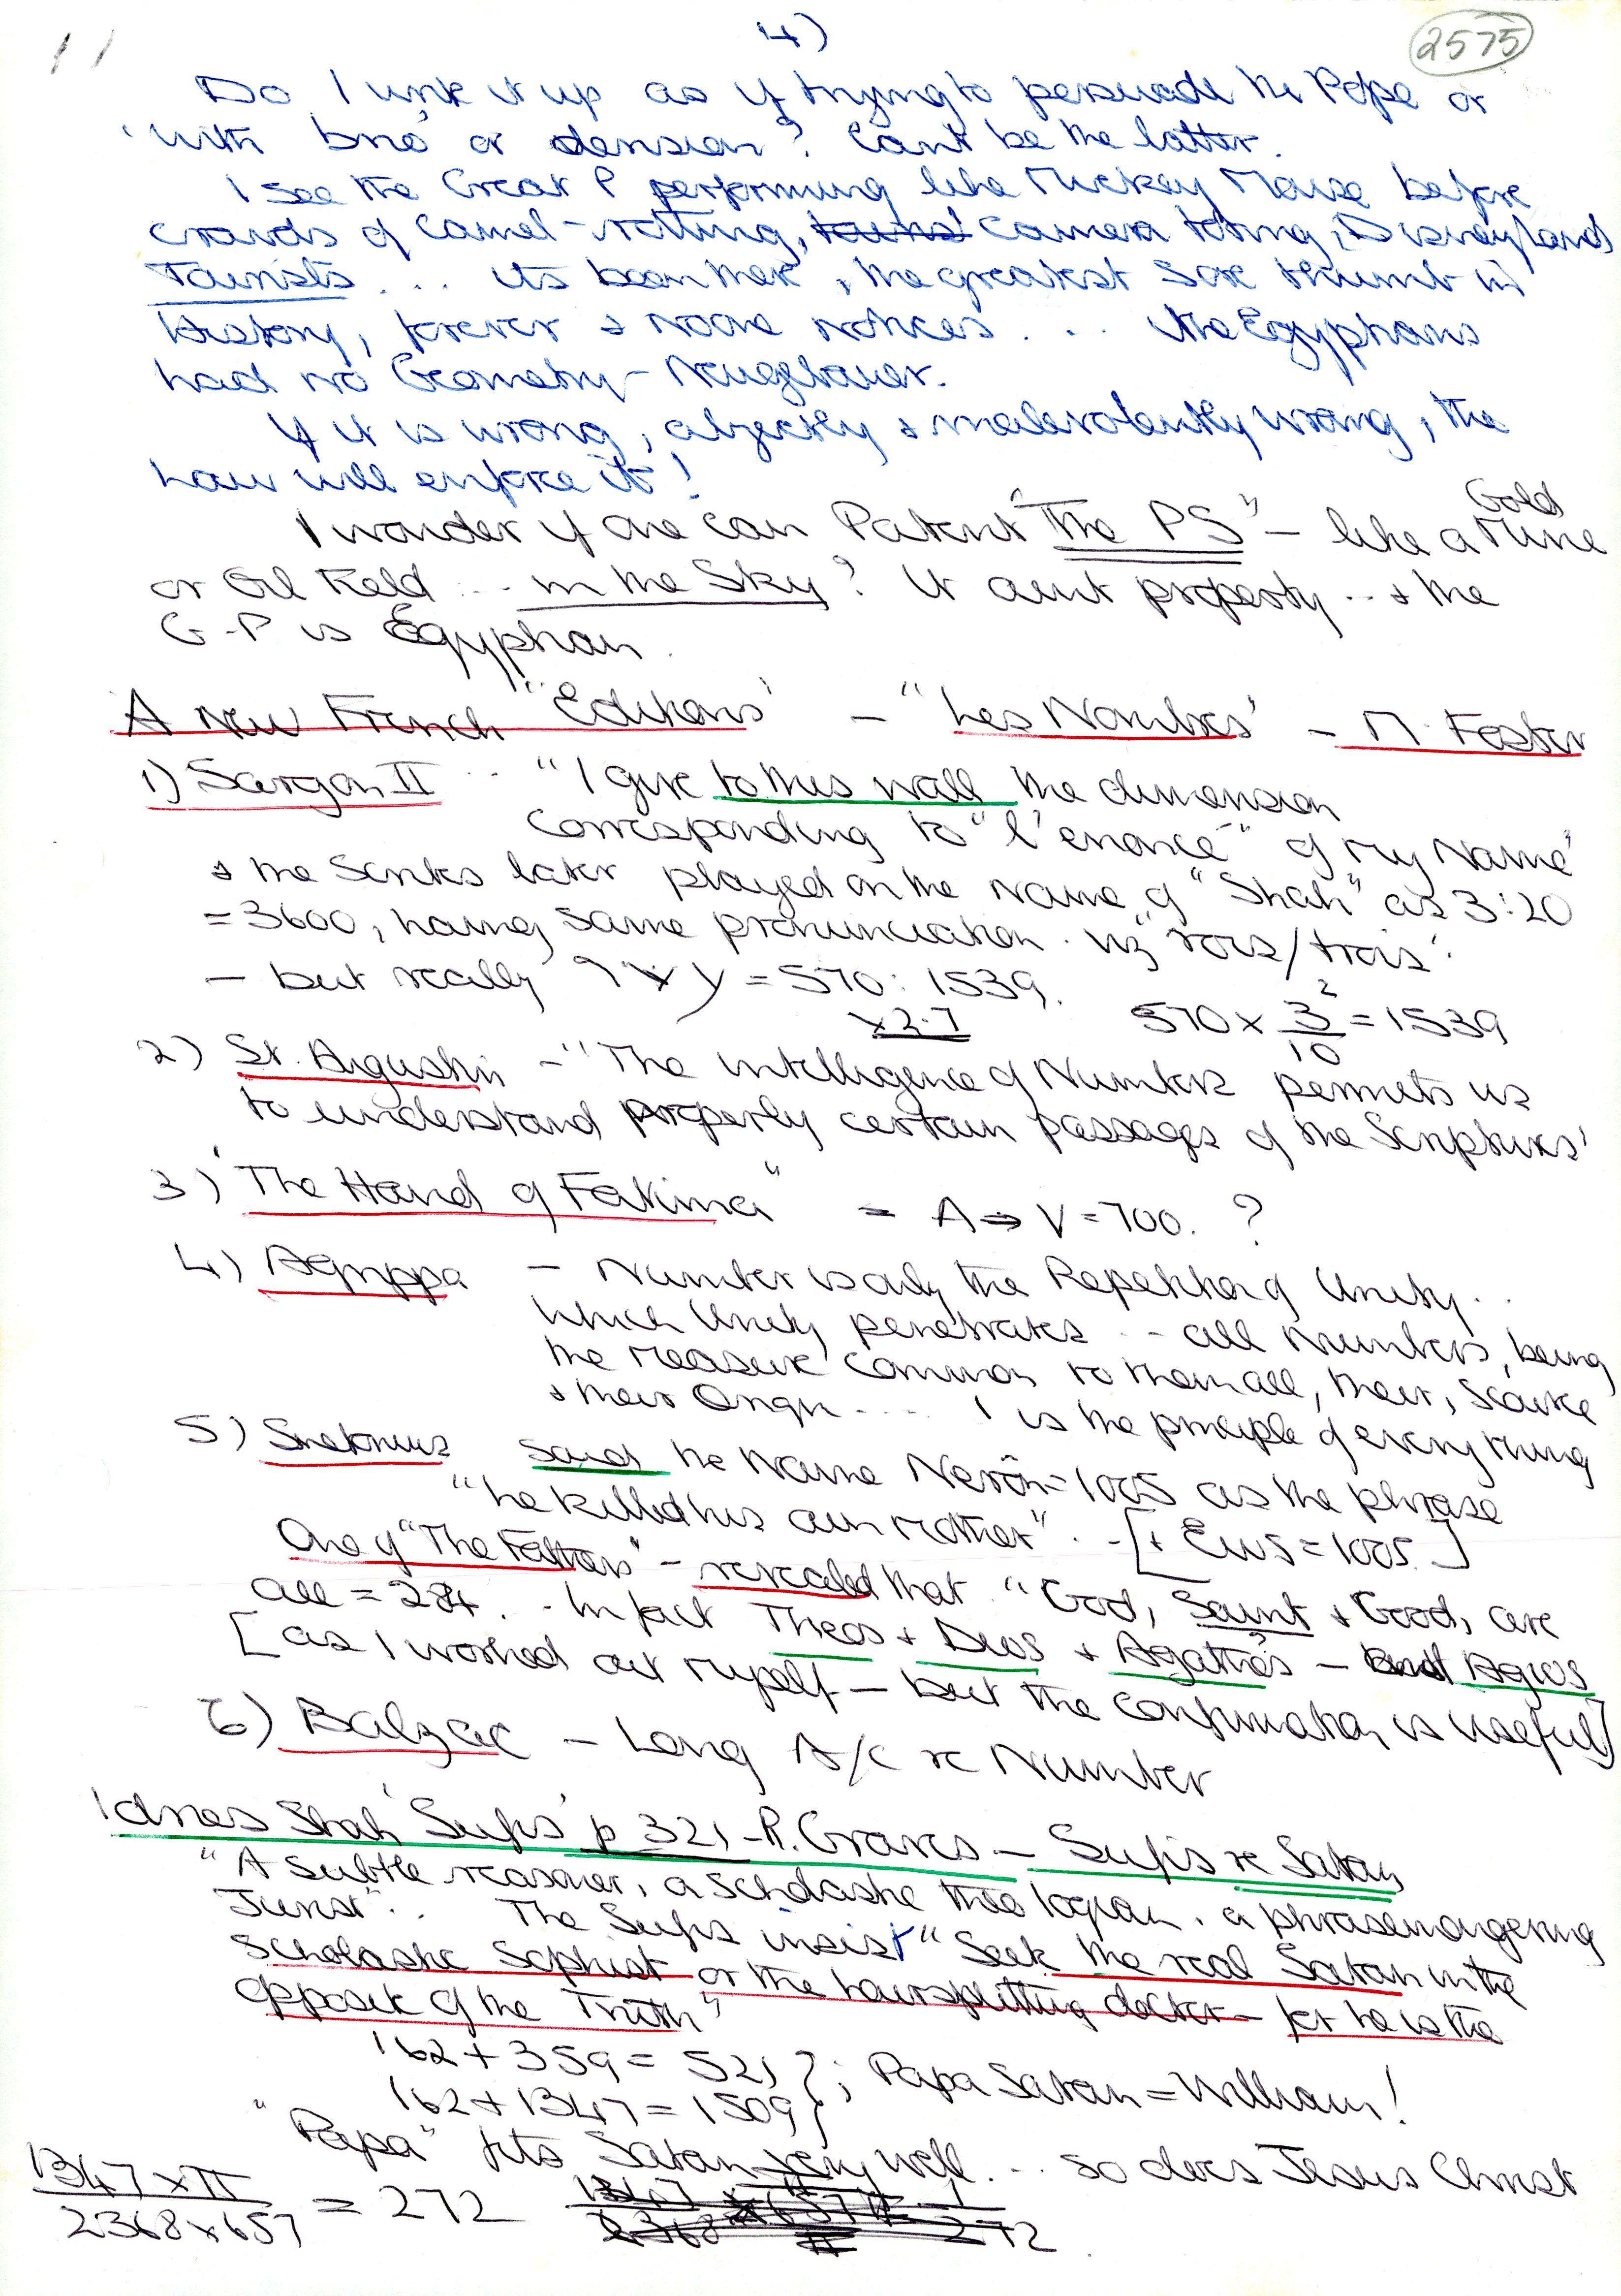 4)
2575
Do I write it up as if trying to persuade the Pope or
'with brio' or derision? Can't be the latter.
I see the Great P performing like Mickey Mouse before
crowds of camel-rotting, tourist camera toting, Disneyland
Tourists ... its been there, the greatest sore thumb in
History, forever & noone notices ... "the Egyptians
had no Geometry – Neugebauer.
If it is wrong, abjectly & malevolently wrong, the
Law will enforce it!
I wonder if one can Patent "The PS" – like a Gold Mine
or Oil Field ... in the Sky? It aint property .. & the
G-P is Egyptian.
A New French "Editions' – "Les Nombres' – M. Fester
1) Sargon II .. "I give to this wall the dimension
corresponding to "l'enoncé" of my Name'
& the Scribes later played on the name of "Shah" as 3:20
= 3600, having same pronunciation. viz "rois/trois'.
– but really ? x y = 570: 1539.
x2.7 570 x 3²/10 = 1539
2) St. Augustin – "The intelligence of Numbers permits us
to understand properly certain passages of the Scriptures'
3) 'The Hand of Fatima" = A ⇒ V = 700. ?
4) Agrippa – Number is only the Repetition of Unity..
which Unity penetrates .. all Numbers, being
the measure common to them all, their, source
& their Origin .... 1 is the principle of everything
5) Suetonius said the Name Nerōn = 1005 as the phrase
"he killed his own mother". - [+ Ews = 1005.]
One of "The Fathers" – revealed that "God, Saint & Good, are
all = 284. . In fact Theos + Dios + Agathos – and Agios
[as I worked out myself – but the confirmation is useful]
6) Balzac – Long A/c re Number
Idries Shah 'Sufis' p 321 – R. Graves – Sufis re Satan
"A subtle reasoner, a scholastic theologian. a phrasemongering
Jurist".. The Sufis insist "Seek the real Satan in the
scholastic sophist or the hairsplitting doctor – for he is the
opposite of the Truth"
162 + 359 = 521 } ; Papa Satan = William!
162 + 1347 = 1509 }
"Papa" fits Satan very well ... so does Jesus Christ
1347 x π / 2368 x 657 = 272